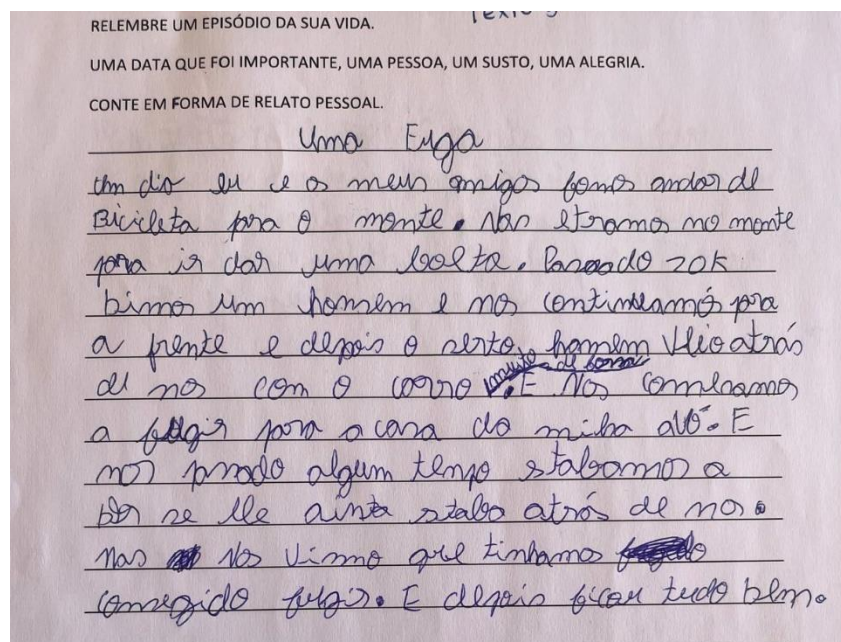 Texto 3
RELEMBRE UM EPISÓDIO DA SUA VIDA.
UMA DATA QUE FOI IMPORTANTE, UMA PESSOA, UM SUSTO, UMA ALEGRIA.
CONTE EM FORMA DE RELATO PESSOAL.
Uma Fuga
Um dia eu e os meus amigos fomos andar de
Bicicleta pra o monte. Nós etramos no monte
para ir dar uma bolta. Pasado 20K
bimos um homem e nos continuamos pra
a frente e depois o serto homem veio atrás
de nos com o corro. E Nos comesamos
a fugir para a casa da minha avó. E
nos pasado algum tempo stabamos a
ber se ele ainta staba atrás de nos.
Mas Nos vimo que tinhamos
consegido fugir. E depois ficou tudo bem.